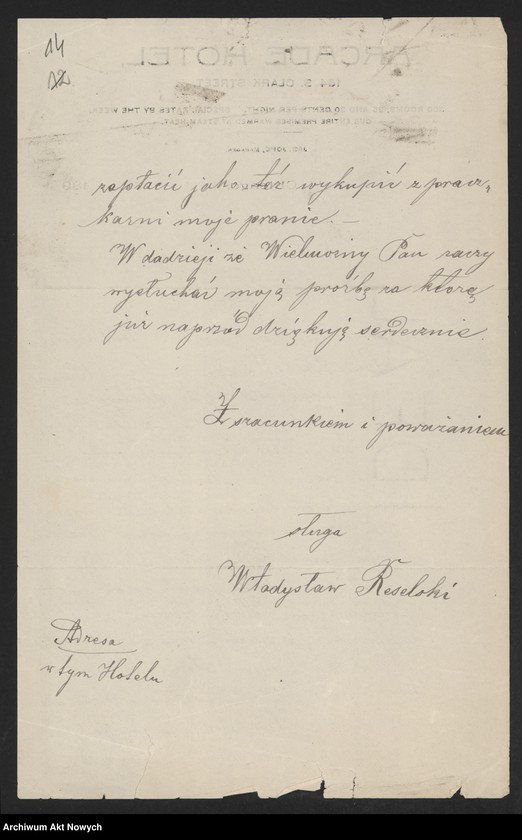 14
12
ARCADE HOTEL
164 S. CLARK STREET
zapłacić jako też wykupić z pracz,
karni moje pranie. –
W dadzieji że Wielmożny Pan raczy
wysłuchać moją proźbę za ktorę
już naprzód dziękuję serdecznie.
Z szacunkiem i poważaniem
sługa
Władysław
Adresa
w tym Hotelu
Archiwum Akt Nowych